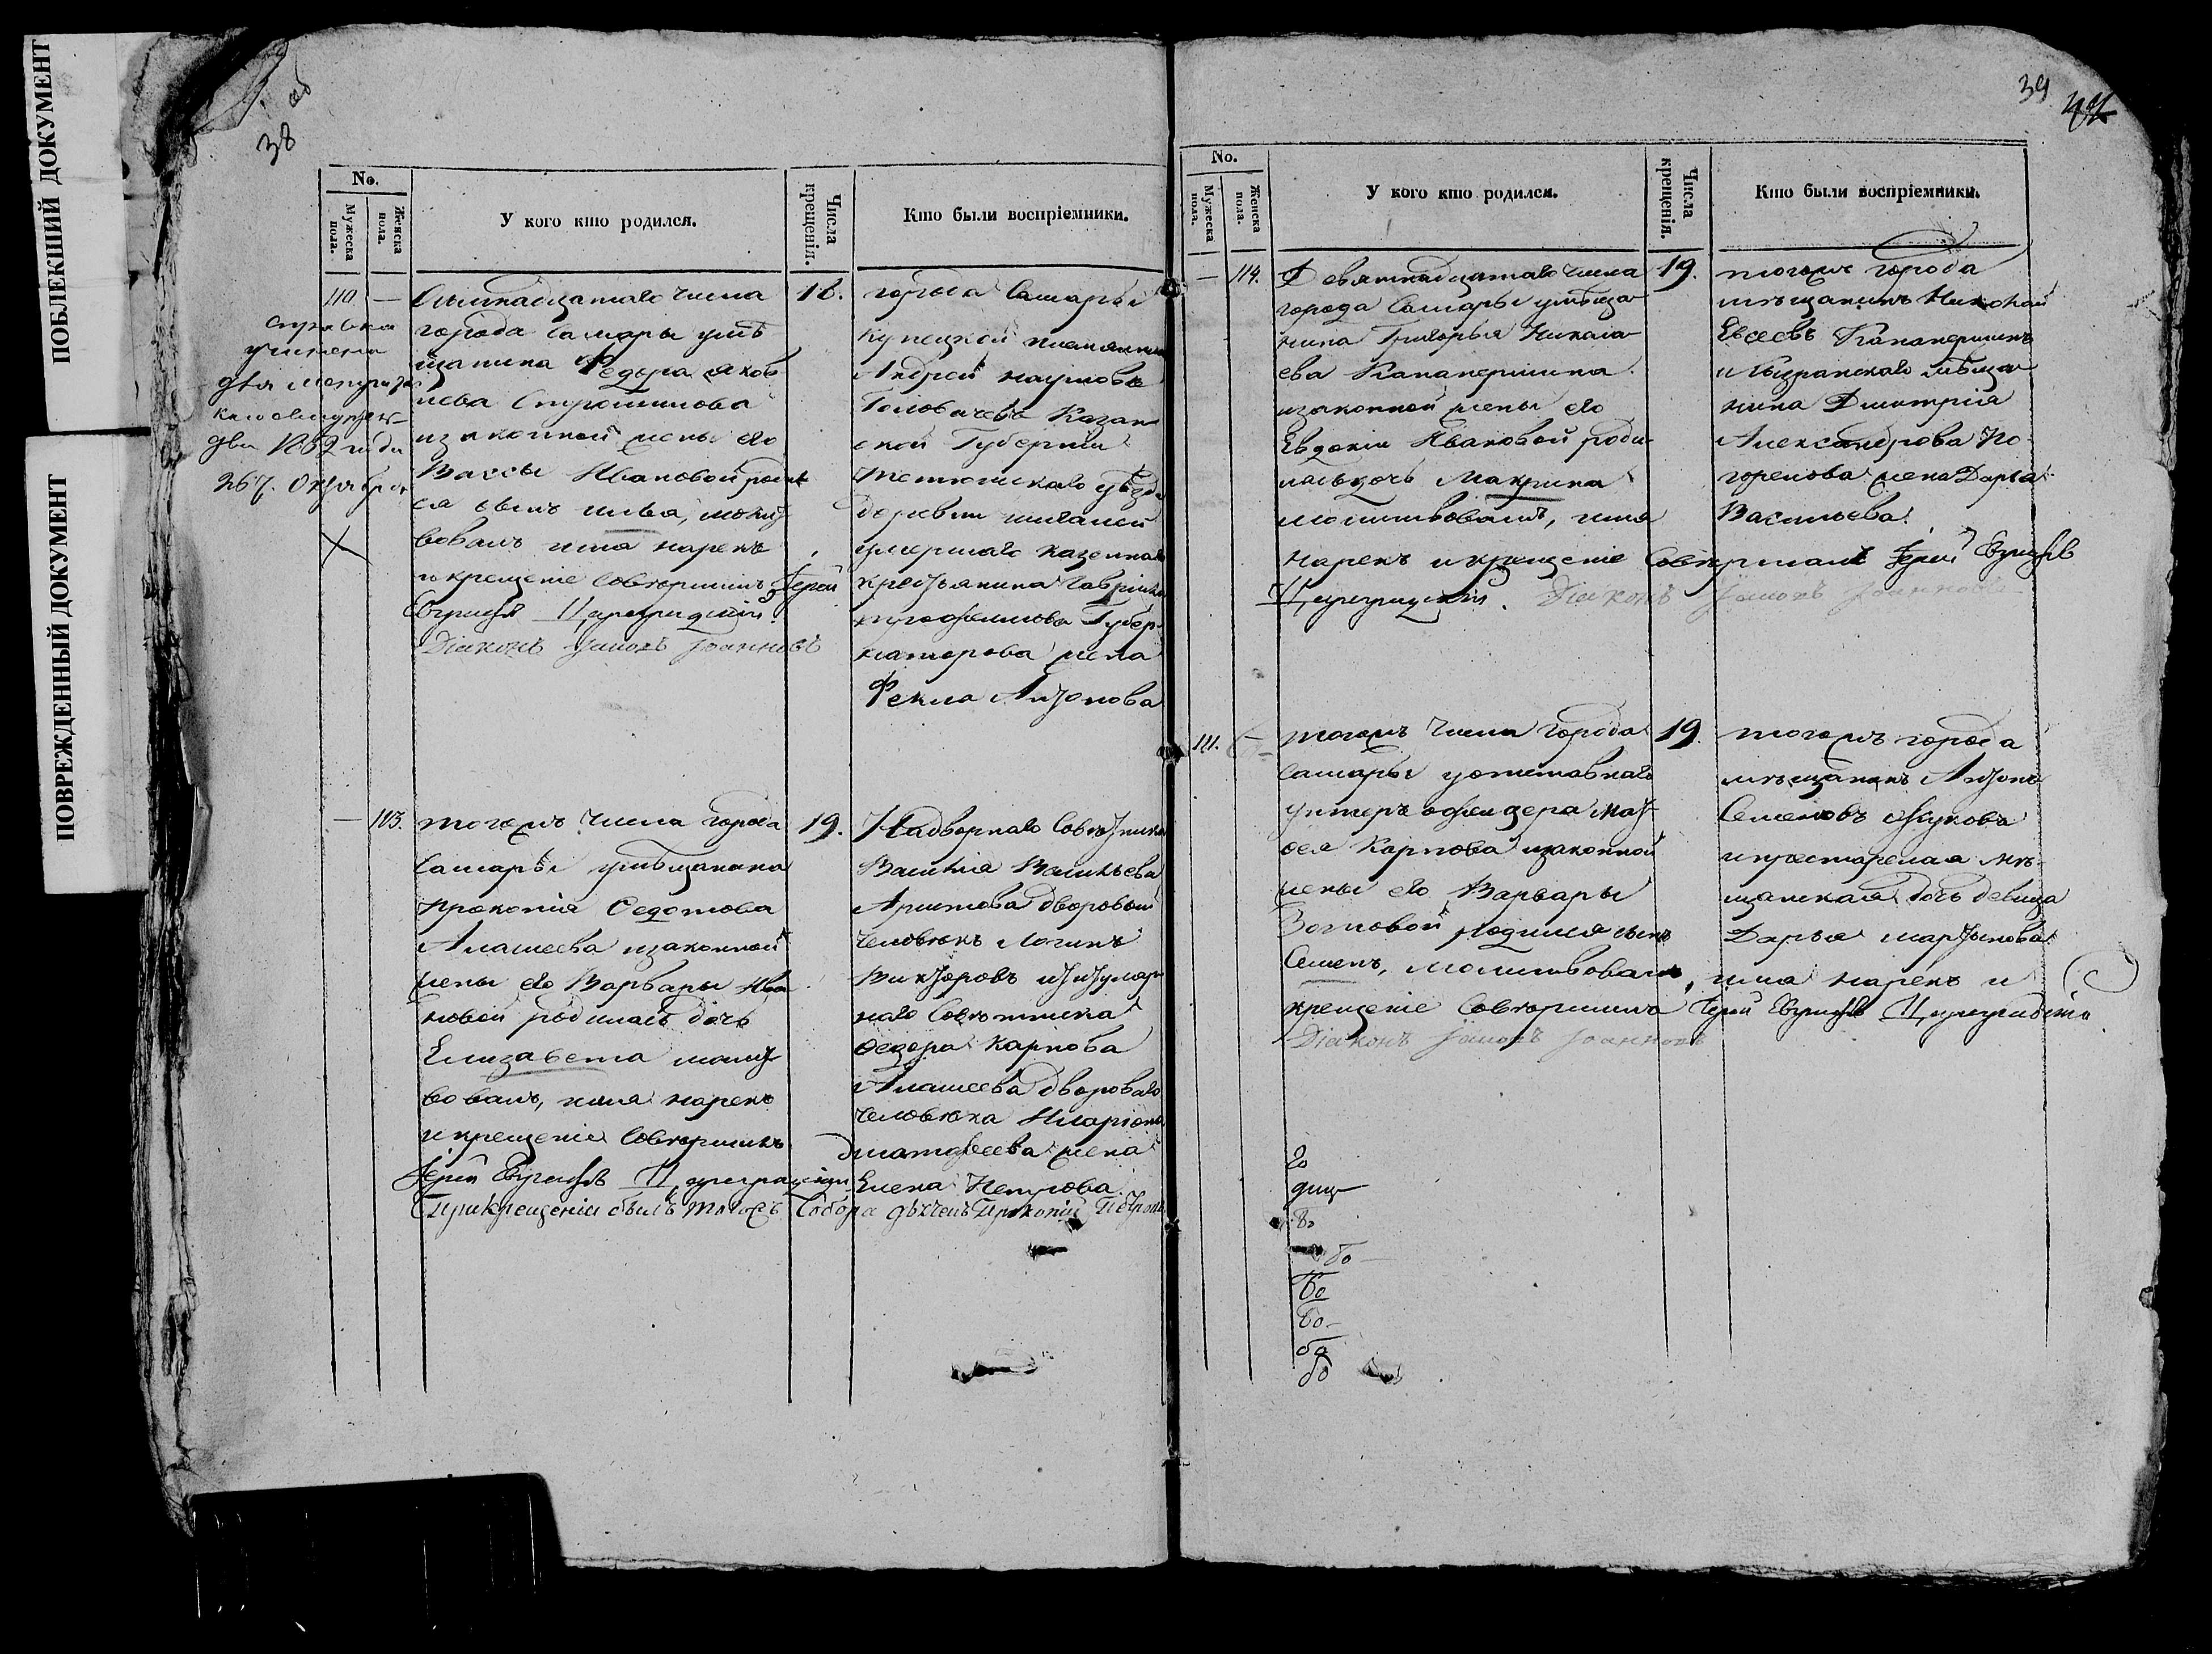 ПОБЛЕКШИЙ ДОКУМЕНТ
ПОВРЕЖДЕННЫЙ ДОКУМЕНТ
38 об
No.
Мужеска пола.
Женска пола.
У кого кто родился.
Числа крещенія.
Кто были воспріемники.
110. —
справка
учинена
для
1852 года
267. Октября
города Самары умѣ
щанина Федора Яков
лева
иззаконной жены его
Вассы Ивановой родил
ся сынъ Илья, молит
вовалъ имя нарекъ
и крещеніе совершилъ Іерей
Цареградскій
Діаконъ Іоанновъ
18.
города Самары
купеческой племянникъ
Андрей Наумовъ
Головачевъ Казан
ской Губерніи
Тетюшскаго уѣзда
деревни
умершаго казеннаго
крестьянина Гаврилы
Трофимова Губер
наторова жена
Фекла Антонова
— 113.
тогожъ числа города
Самары умѣщанина
Прокопія Федотова
Алашеева иззаконной
жены его Варвары Ива
новой родилась дочь
Елизавета молит
вовалъ, имя нарекъ
и крещеніе совершилъ
Іерей Цареградскій
При крещеніи былъ тогожъ Собора дьячекъ Прокопій Петровъ
19.
Надворнаго Совѣтника
Василія Васильева
дворовой
человѣкъ Логинъ
Викторовъ ититуляр
наго Совѣтника
Федора Карпова
Алашеева двороваго
человѣка Иларіона
Дматвеева жена
Елена Петрова
39
No.
Мужеска пола.
Женска пола.
У кого кто родился.
Числа крещенія.
Кто были воспріемники.
— 114.
Девятнадцатаго числа
города Самары умѣща
нина Григорья Никола
ева Капанершина
иззаконной жены его
Евдокіи Ивановой роди
ласьдочь Макрина
молитвовалъ, имя
нарекъ икрещеніе совершилъ Іерей
Цареградскій. Діаконъ Іоанновъ
19.
тогожъ города
мѣщанинъ Николай
Евсеевъ Капанершинъ
иСызранскаго мѣща
нина Дмитрія
Александрова По
горелова жена Дарья
Васильева.
111. —
тогожъ числа города
Самары уотставнаго
унтеръ офицера Мат
фея Карпова иззаконной
жены его Варвары
Зотовой родился сынъ
Семенъ, молитвовалъ, имя нарекъ и
крещеніе совершилъ Іерей Цареградскій
Діаконъ Іоанновъ
19.
тогожъ города
мѣщанинъ Антонъ
Семеновъ Жуковъ
ипрестарелая мѣ
щанская дочь девица
Дарья Мартынова